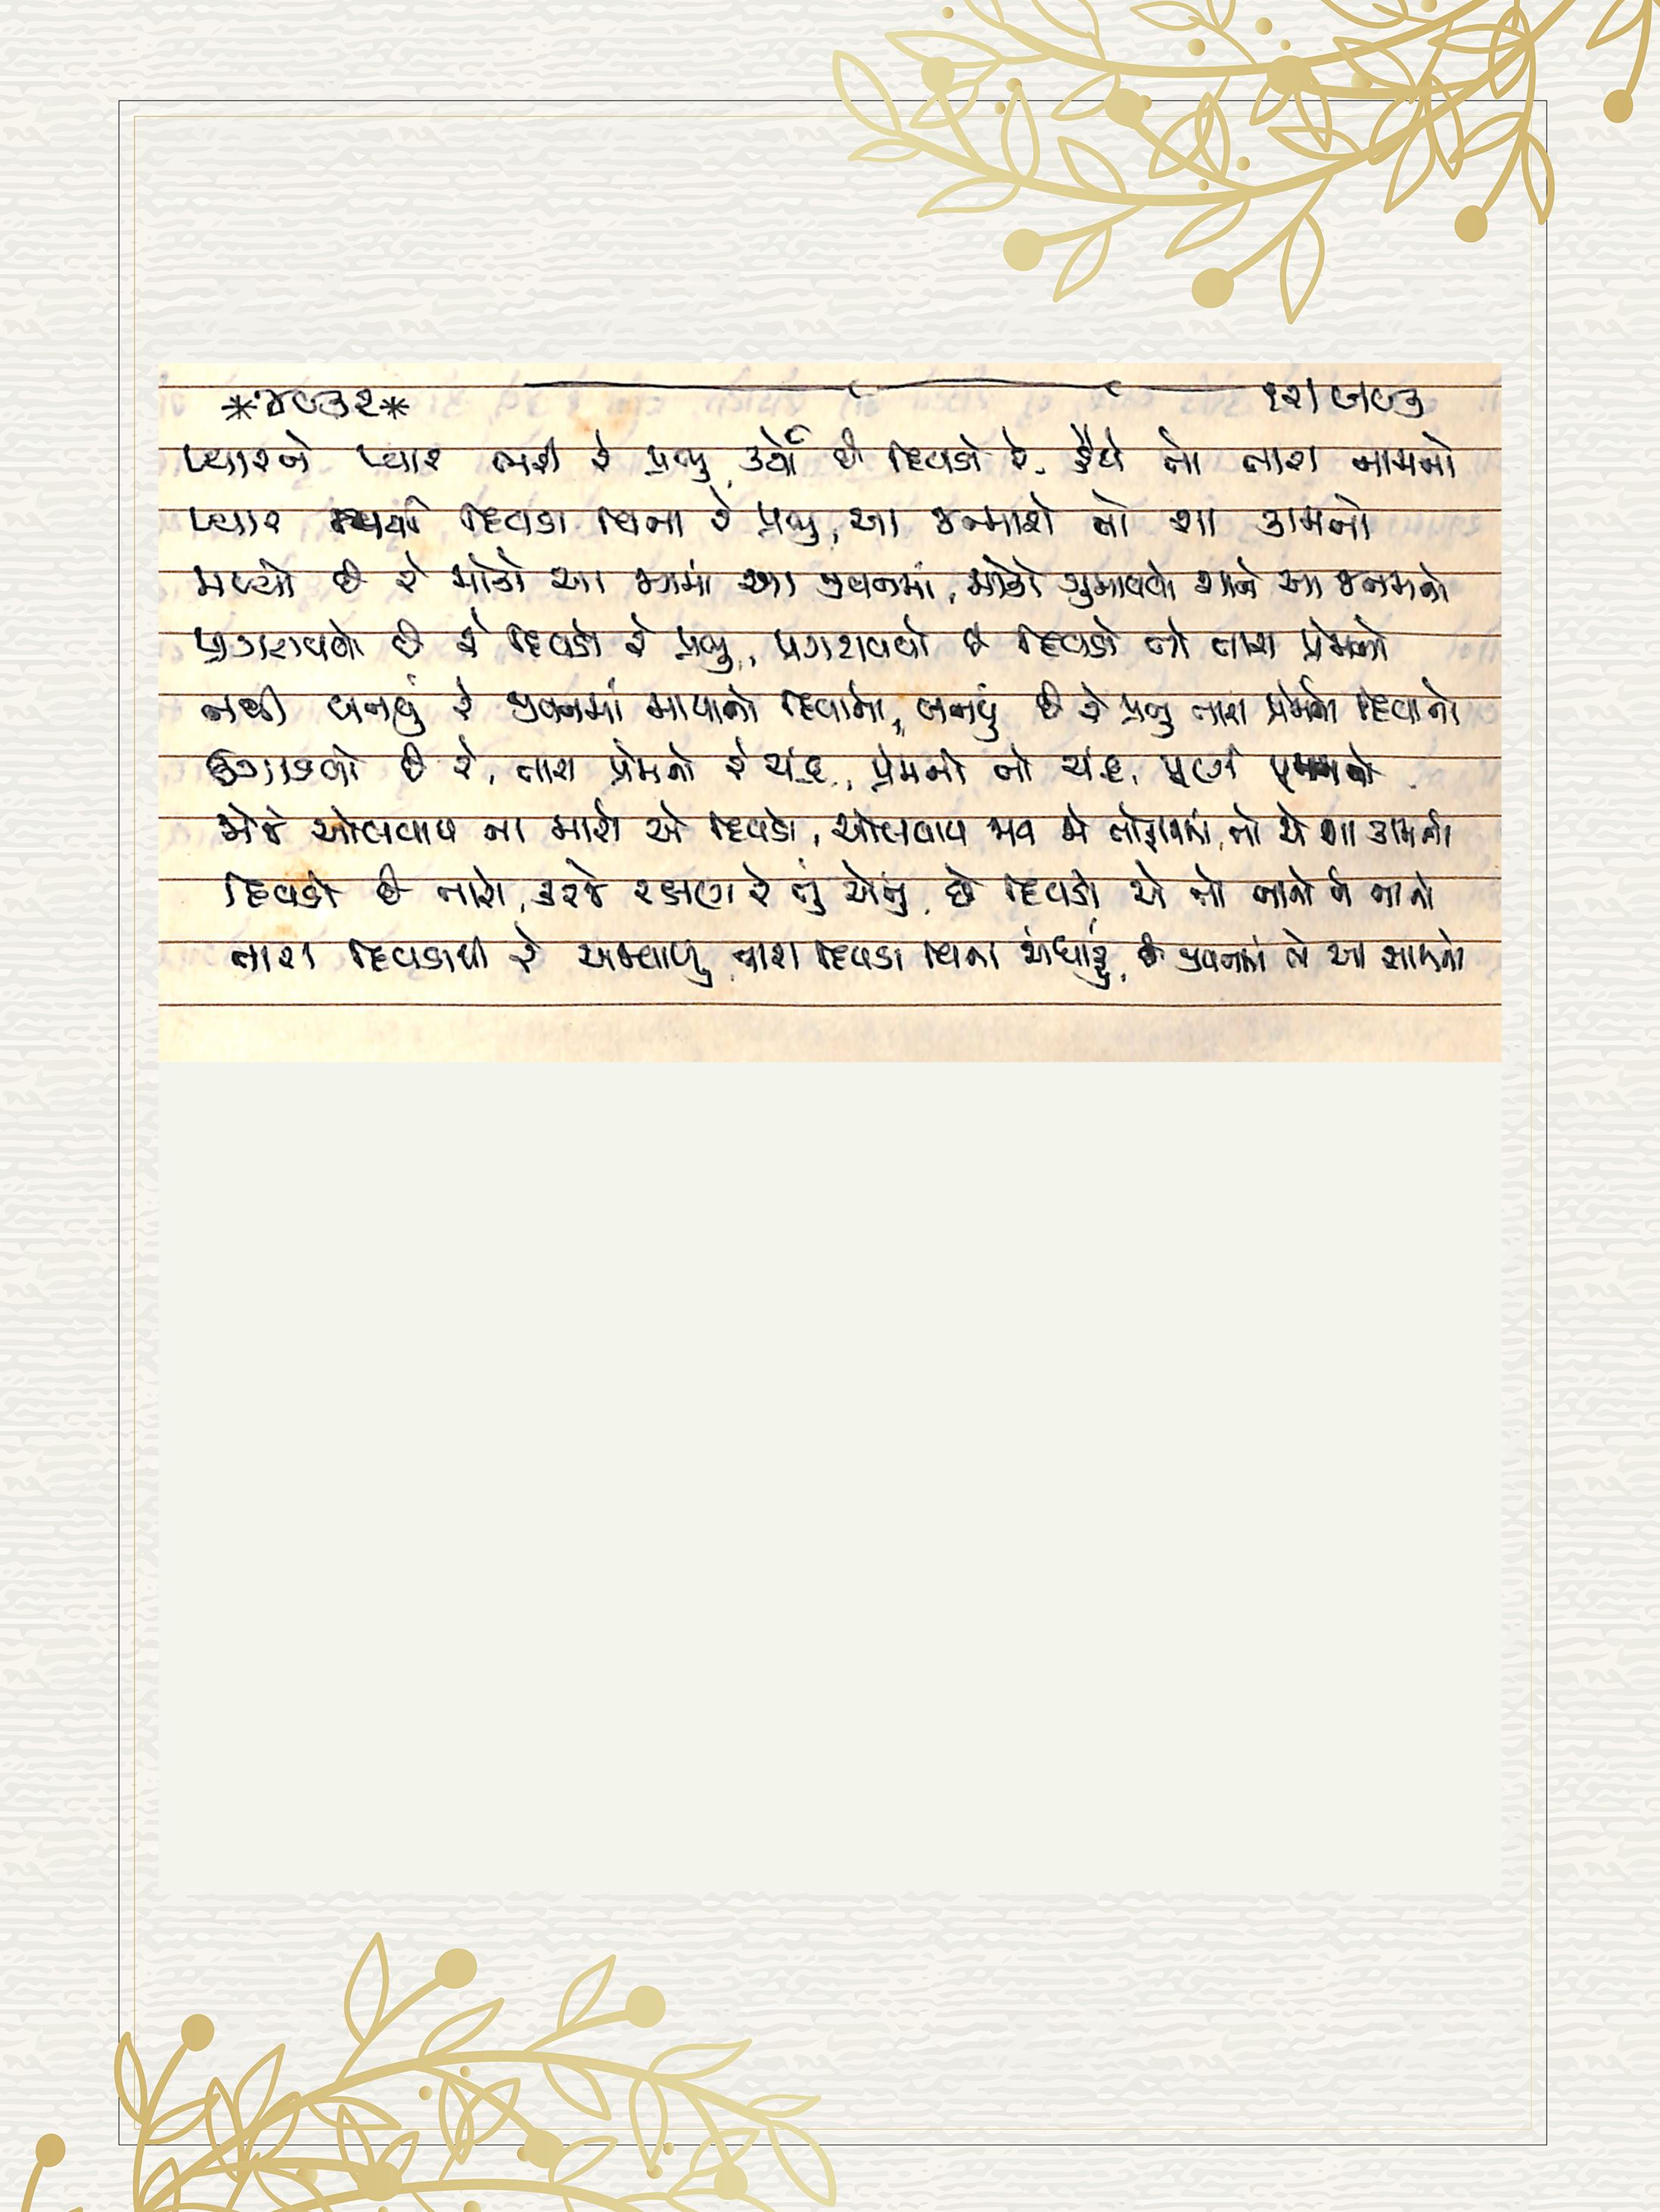 *૪૯૩૨* ૧૨/૭/૯૩
પ્યારને પ્યાર ભરી રે પ્રભુ, કર્યો છે દિવડો રે, હૈયે તો તારા નામનો
પ્યાર ભર્યા દિવડા વિના રે પ્રભુ, આ જન્મારો તો શા કામનો
મળ્યો છે રે મોકો આ જગમાં આ જીવનમાં, મોકો ગુમાવવો શાને આ જનમનો
પ્રગટાવવો છે રે દિવડો રે પ્રભુ, પ્રગટાવવો છે દિવડો તો તારા પ્રેમનો
નથી બનવું રે જીવનમાં માયાનો દિવાનો, બનવું છે રે પ્રભુ તારા પ્રેમનો દિવાનો
ઉગાડવો છે રે, તારા પ્રેમનો રે ચંદ્ર, પ્રેમનો તો ચંદ્ર, પૂર્ણ પૂનમનો
જોજે ઓલવાય ના મારો એ દિવડો, ઓલવાય ભવ જો તોફાનમાં, તો એ શા કામનો
દિવડો છે તારો, કરજે રક્ષણ રે તું એનું, છે દિવડો એ તો નાનો ને નાનો
તારા દિવડાથી રે અજવાળું, તારા દિવડા વિના અંધારું, છે જીવનમાં તો આ સામનો